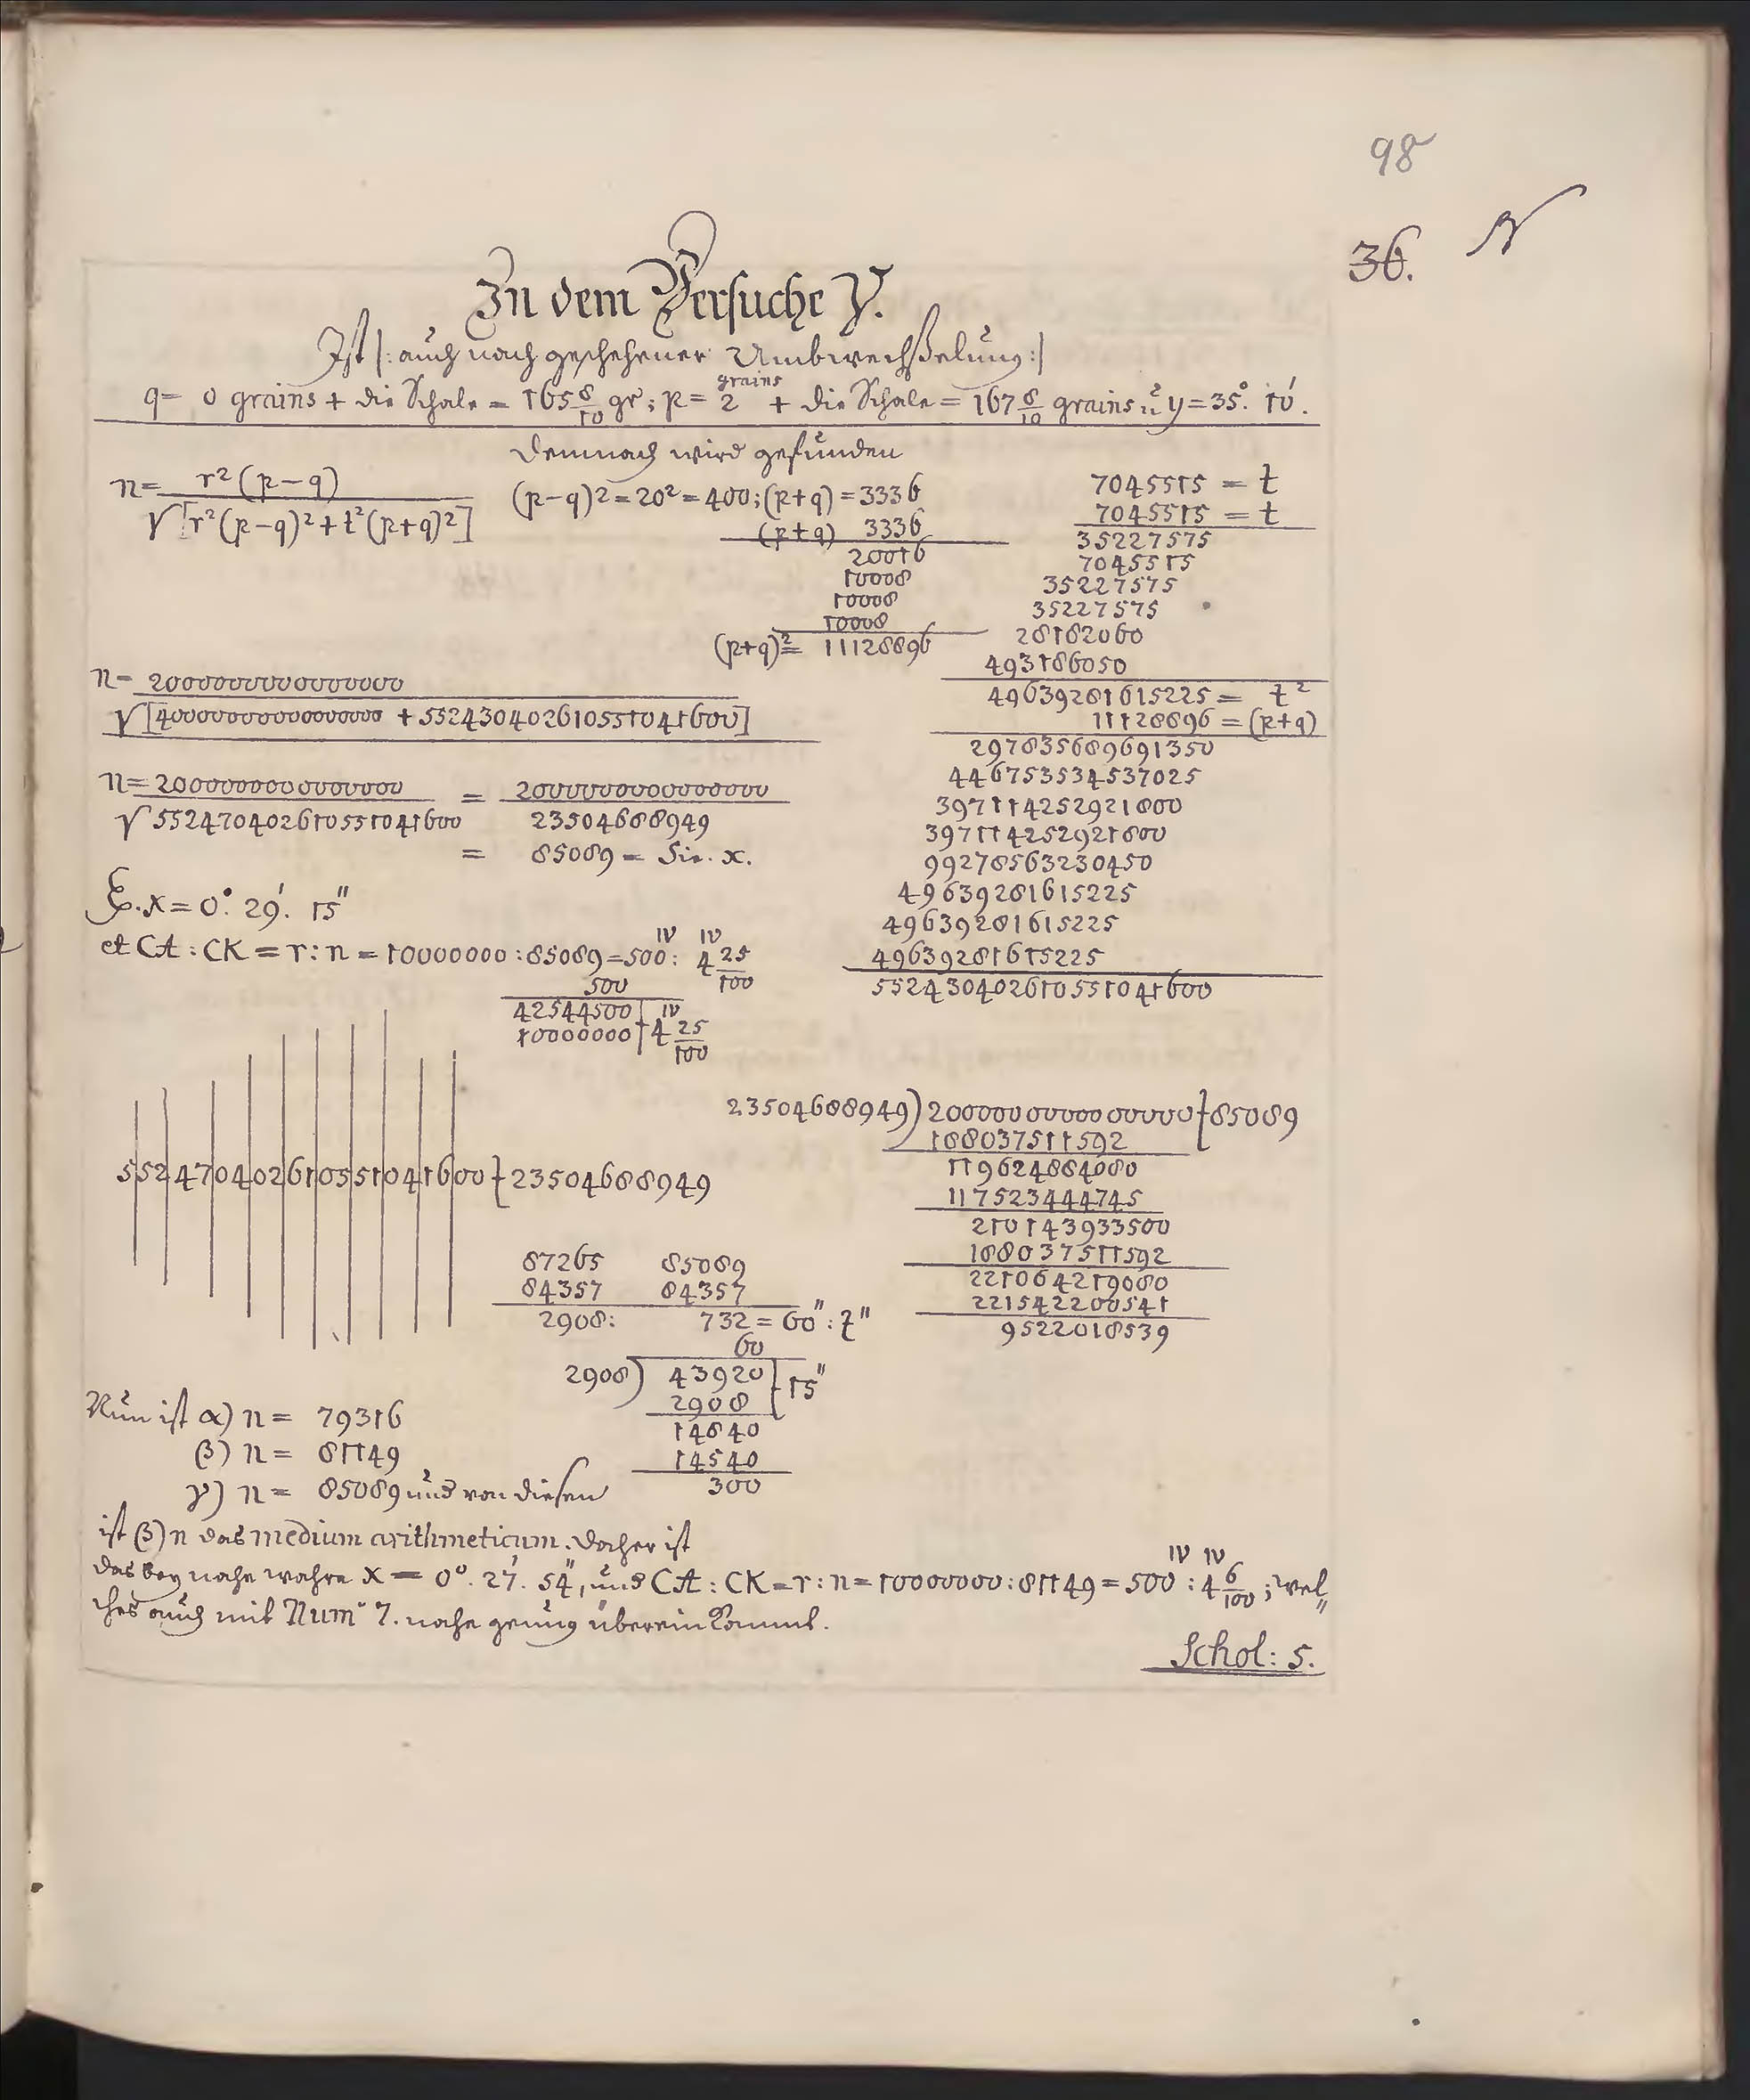 98
36.
In dem Versuche γ.
Ist |: auch nach geschehener Umbwechßelung :|
q = 0 grains + die Schale = 165 8/10 gr; p = 2 grains + die Schale = 167 8/10 grains u y = 35°. 10′.
Demnach wird gefunden
n = r²(p−q) / √[r²(p−q)²+t²(p+q)²]
(p−q)² = 20² = 400; (p+q) = 3336
(p+q) 3336
20016
10008
10008
10008
(p+q)² = 11128896
7045515 = t
7045515 = t
35227575
7045515
35227575
35227575
28182060
493186050
49639281615225 = t²
11128896 = (p+q)
297835689691350
446753534537025
397114252921800
397114252921800
99278563230450
49639281615225
49639281615225
49639281615225
552430402610551041600
n = 2000000000000000
√[40000000000000000 + 552430402610551041600]
n = 2000000000000000 = 2000000000000000
√552470402610551041600 23504688949
= 85089 = Sin. x.
x = 0°. 29′. 15″
et CA : CK = r : n = 10000000 : 85089 = 500 IV : 4 IV 25/100
500
42544500 | IV
10000000 | 4 25/100
552470402610551041600 } 23504688949
23504688949) 2000000000000000 } 85089
188037511592
119624884080
117523444745
210143933500
188037511592
221064219080
221542200541
9522018539
87265 85089
84357 84357
2908 : 732 = 60″ : z″
60
2908) 43920 } 15″
2908
14840
14540
300
Nun ist α) n = 79316
β) n = 81149
γ) n = 85089 und von diesen
ist β) n das medium arithmeticum. Daher ist
das bey nahe wahre x = 0°. 27′. 54″, und CA : CK = r : n = 10000000 : 81149 = 500 IV : 4 IV 6/100; wel„
ches auch mit Num 7. nahe genug überein kommt.
Schol: 5.